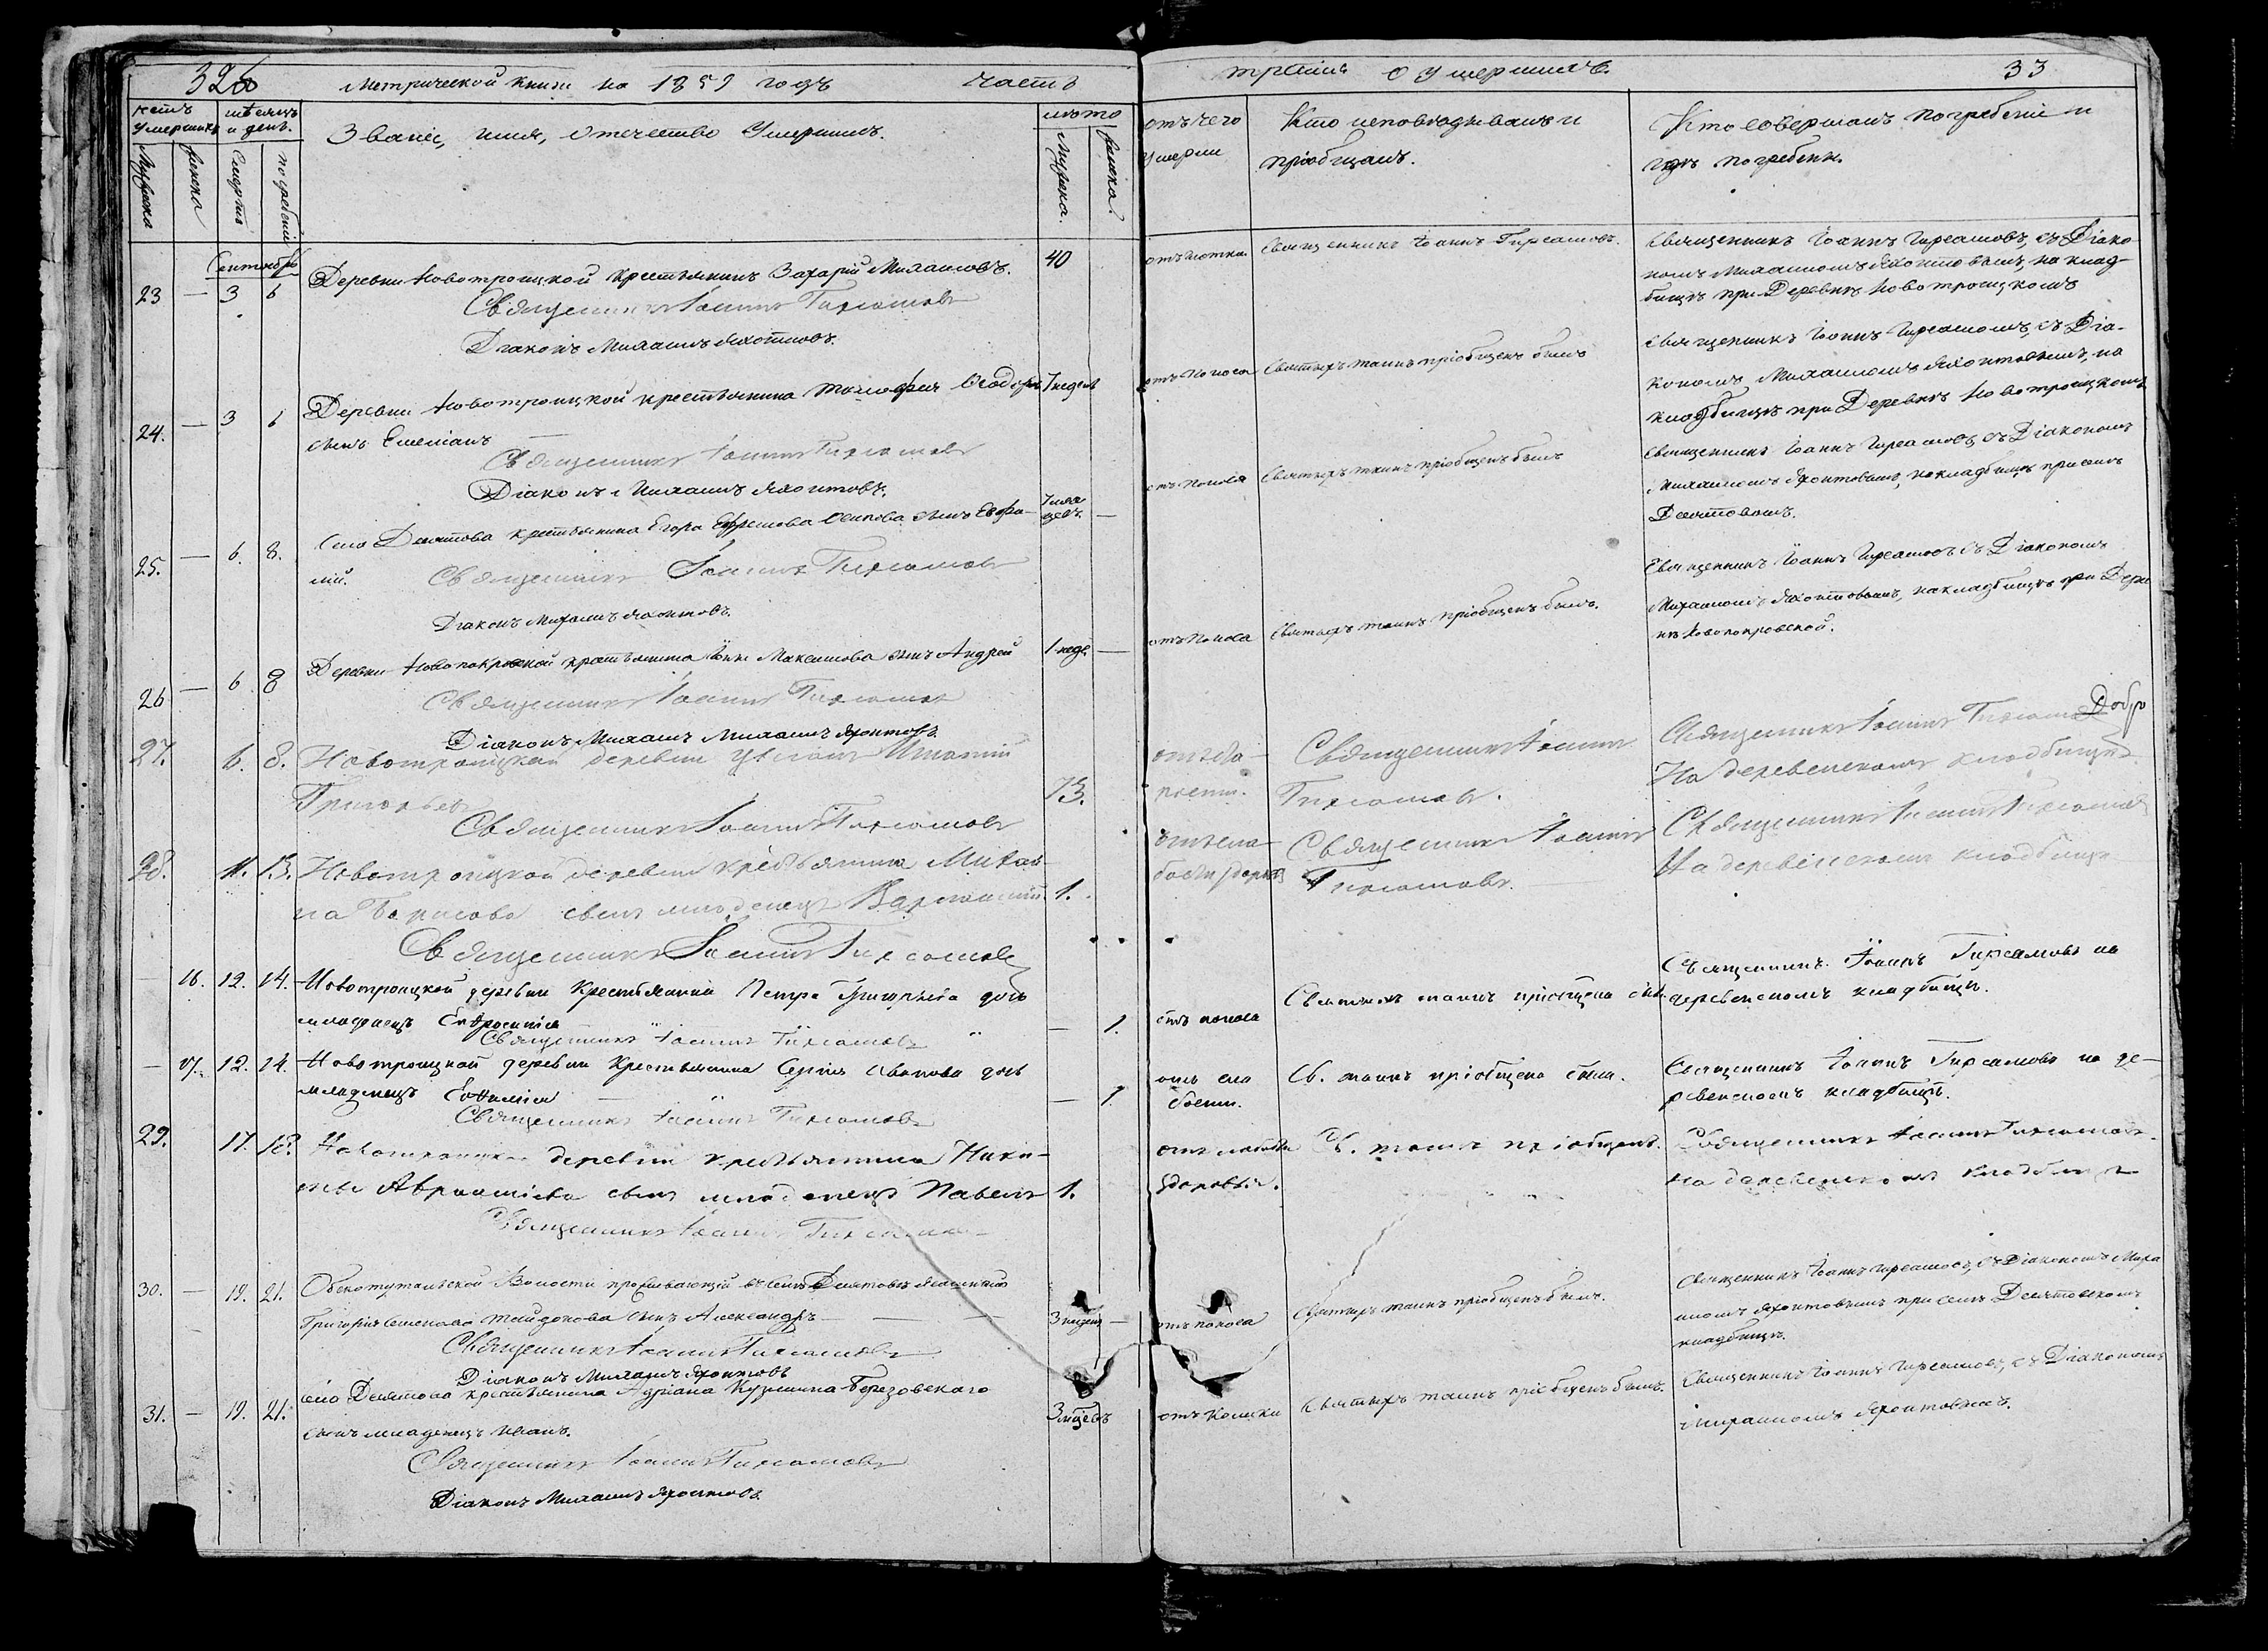 326 Метрической книги на 1859 годъ часть
третія о умершихъ. 33
счетъ умершихъ
мѣсяцъ и день.
Званіе, имя, отечество умершихъ.
лѣта
отъ чего умерли
Кто исповѣдывалъ и пріобщалъ.
Кто совершалъ погребеніе и гдѣ погребены.
Мужеска
женска
Смерти
погребенія
Мужеска.
женска.
Сентябрь
23 — 3 6
Деревни Новотроицкой крестьянинъ Захарій Михаиловъ.
40
Священникъ Іоаннъ Гирсамовъ
Діаконъ Михаилъ Яхонтовъ.
Священникъ Іоаннъ Гирсамовъ.
Священникъ Іоаннъ Гирсамовъ, съ Діако-
номъ Михаиломъ Яхонтовымъ, на клад-
бищѣ при Деревнѣ Новотроицкомъ
24. — 3 6
Деревни Новотроицкой крестьянина Тимофея Ѳеодорова
сынъ Емеліанъ
7 недель
Священникъ Іоаннъ Гирсамовъ
Діаконъ Михаилъ Яхонтовъ.
отъ поноса
Святыхъ таинъ пріобщенъ былъ
Священникъ Іоаннъ Гирсамовъ, съ Діа-
кономъ Михаиломъ Яхонтовымъ, на
кладбищѣ при Деревнѣ Новотроицкомъ
25. — 6. 8.
Села Десятова крестьянина Егора Ефремова Осипова сынъ Евфи-
мій.
7 мѣся
цевъ. —
Священникъ Іоаннъ Гирсамовъ
Діаконъ Михаилъ Яхонтовъ.
отъ поноса
Святыхъ таинъ пріобщенъ былъ
Священникъ Іоаннъ Гирсамовъ, съ Діакономъ
Михаиломъ Яхонтовымъ, на кладбищѣ при селѣ
Десятовомъ.
26 — 6 8
Деревни Новопокровской крестьянина Максимова сынъ Андрей
1 неде. —
Священникъ Іоаннъ Гирсамовъ
Діаконъ Михаилъ Михаилъ Яхонтовъ
отъ поноса
Святыхъ таинъ пріобщенъ былъ.
Священникъ Іоаннъ Гирсамовъ съ Діакономъ
Михаиломъ Яхонтовымъ, на кладбищѣ при Дерев
нѣ Новопокровской.
27. 6. 8.
Новотроицкой деревни Игнатій
Григорьевъ
73.
Священникъ Іоаннъ Гирсамовъ
Священникъ Іоаннъ
Гирсамовъ.
Священникъ Іоаннъ Гирсамовъ
На деревенскомъ кладбищѣ.
28. 11. 13.
Новотроицкой деревни крестьянина Михаи-
ла Борисова сынъ младенецъ
1.
Священникъ Іоаннъ Гирсамовъ
отъ сла-
бости здоров
Священникъ Іоаннъ
Гирсамовъ.
Священникъ Іоаннъ Гирсамовъ
На деревенскомъ кладбищѣ
— 16. 12. 14.
Новотроицкой деревни Крестьянина Петра Григорьева дочь
младенецъ Евфросинія
— 1.
Священникъ Іоаннъ Гирсамовъ
отъ поноса
Святыхъ таинъ пріобщена была
Священникъ Іоаннъ Гирсамовъ на
деревенскомъ кладбищѣ.
— 17. 12. 14.
Новотроицкой деревни Крестьянина Сергія Иванова дочь
младенецъ Евѳимія
— 1.
Священникъ Іоаннъ Гирсамовъ
отъ сла
бости.
Св. таинъ пріобщена была.
Священникъ Іоаннъ Гирсамовъ на де-
ревенскомъ кладбищѣ.
29. 17. 18.
Новотроицкой деревни крестьянина Ники-
ты Авраамиева сынъ младенецъ Павелъ
1.
Священникъ Іоаннъ Гирсамовъ
отъ слабости
здоровья.
Св. таинъ пріобщенъ.
Священникъ Іоаннъ Гирсамовъ.
на деревенскомъ кладбищѣ
30. — 19. 21.
волости проживающій въ селѣ Десятовѣ
Григорія Семенова сынъ Александръ — — —
3 недели —
Священникъ Іоаннъ Гирсамовъ
Діаконъ Михаилъ Яхонтовъ
отъ поноса
Святыхъ таинъ пріобщенъ былъ.
Священникъ Іоаннъ Гирсамовъ, съ Діакономъ Миха
иломъ Яхонтовымъ при селѣ Десятовскомъ
кладбищѣ.
31. — 19. 21.
села Десятова крестьянина Адріана Кузмина Березовскаго
сынъ младенецъ Иванъ.
3 мѣсецъ
Священникъ Іоаннъ Гирсамовъ
Діаконъ Михаилъ Яхонтовъ.
Святыхъ таинъ пріобщенъ былъ.
Священникъ Іоаннъ Гирсамовъ, съ Діакономъ
Михаиломъ Яхонтовымъ.